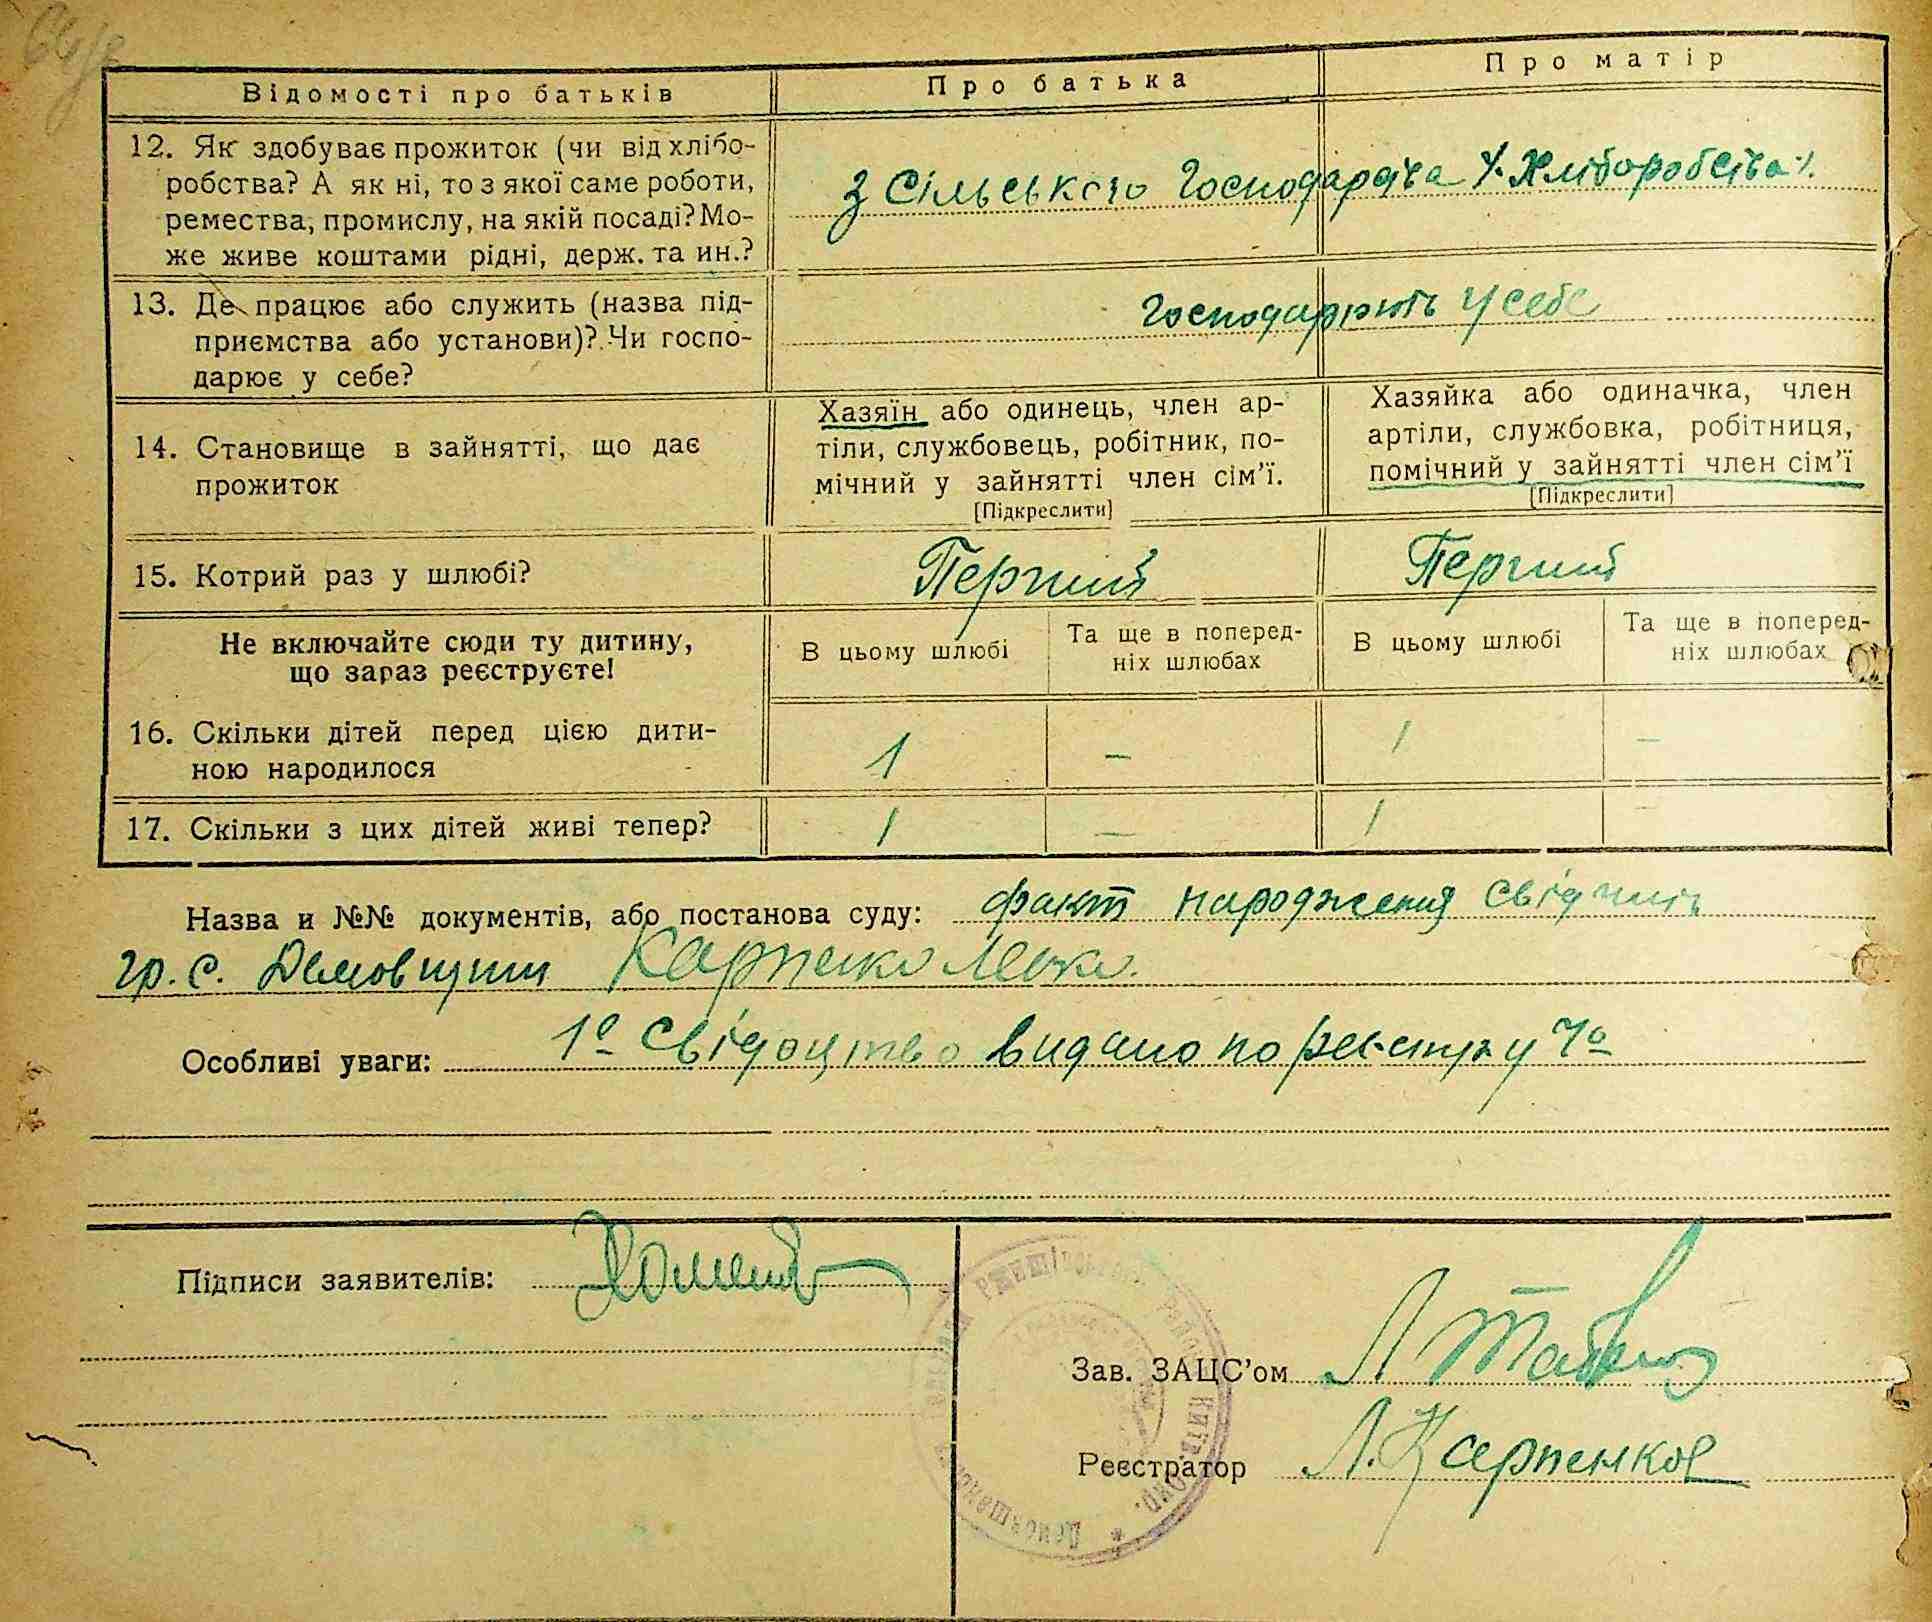 Відомості про батьків
Про батька
Про матір
12. Як здобуває прожиток (чи від хлібо-
робства? А як ні, то з якої саме роботи,
ремества, промислу, на якій посаді? Мо-
же живе коштами рідні, держ. та ин.?
З Сільського Господарства /. Хліборобства ./.
13. Де працює або служить (назва під-
приємства або установи)? Чи госпо-
дарює у себе?
Господарють у себе
14. Становище в зайнятті, що дає
прожиток
Хазяїн або одинець, член ар-
тіли, службовець, робітник, по-
мічний у зайнятті член сім’ї.
[Підкреслити]
Хазяйка або одиначка, член
артіли, службовка, робітниця,
помічний у зайнятті член сім’ї
[Підкреслити]
15. Котрий раз у шлюбі?
Перший
Перший
Не включайте сюди ту дитину,
що зараз реєструєте!
В цьому шлюбі
Та ще в поперед-
ніх шлюбах
В цьому шлюбі
Та ще в поперед-
ніх шлюбах
16. Скільки дітей перед цією дити-
ною народилося
1
—
1
—
17. Скільки з цих дітей живі тепер?
1
—
1
—
Назва и №№ документів, або постанова суду: факт народження свідчить
гр. с. Демовщини Карпенко
Особливі уваги: 1º Свідоцтво видано по реєстру
Підписи заявителів:
Зав. ЗАЦС’ом
Реєстратор Л. Карпенко